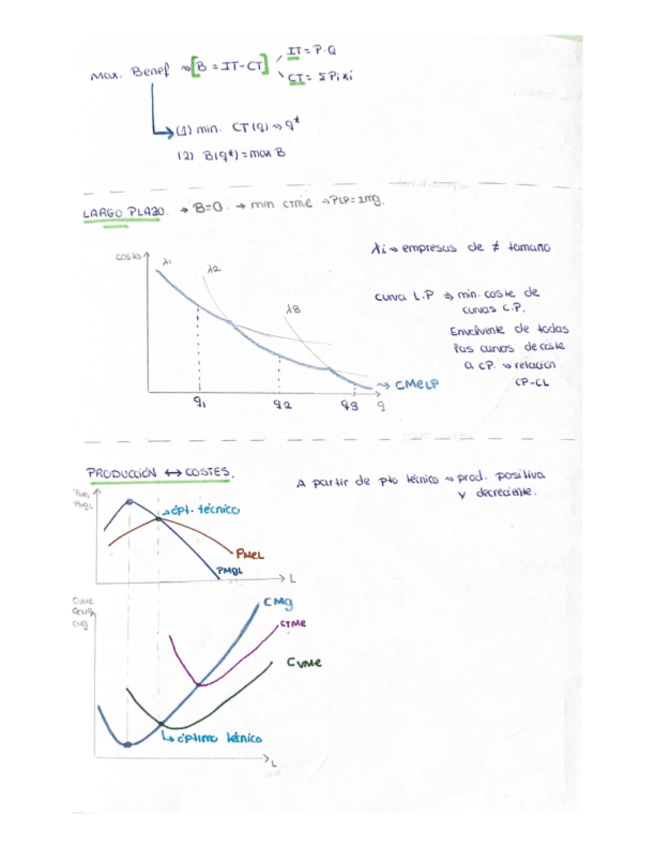 Max. Benef ⇝ [B = IT-CT]
IT = P·Q
CT = ΣPiXi
(1) min. CT(q) ⇝ q*
(2) B(q*) = max B
LARGO PLAZO. → B=0. → min CTMe → PLP = Img.
costes
λ1
λ2
λ3
q1 q2 q3 q
→ CMeLP
λi ⇝ empresas de ≠ tamaño
curva L.P ⇝ min. coste de
curvas C.P.
Envolvente de todas
las curvas de coste
a CP. ⇝ relación
CP-CL
PRODUCCIÓN ↔ COSTES.
A partir de pto técnico ⇝ prod. positiva
y decreciente.
PMeL
PMgL
→ ópt. técnico
PMeL
PMgL
L
CVMe
CMg
CMg
CTMe
CVMe
↳ óptimo técnico
L